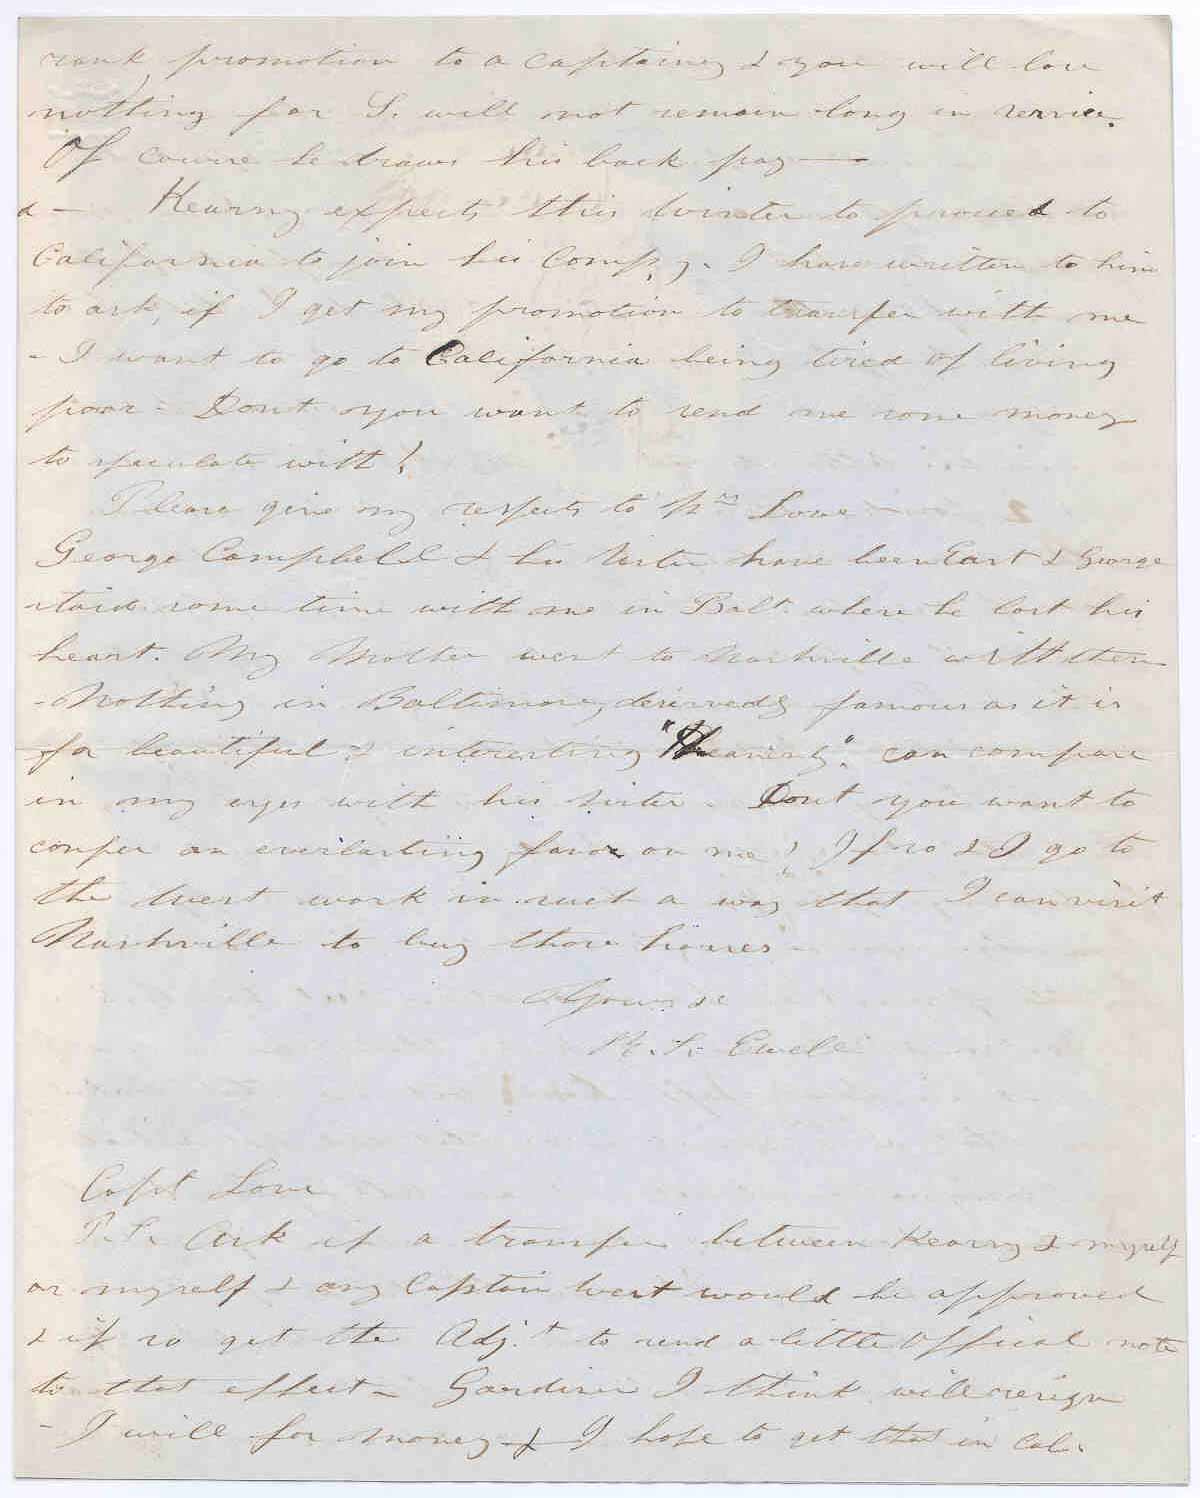 rank, promotion to a captaincy & you will lose
nothing for S. will not remain long in service.
Of course he draws his back pay —
& — Kearny expects this winter to proceed to
California to join his Compy. I have written to him
to ask, if I get my promotion to transfer with me
- I want to go to California being tired of living
poor - Dont you want to send me some money
to speculate with!
Please give my respects to Mrs Love
George Campbell & his sister have been East & George
staid some time with me in Balt. where he lost his
heart. My Mother went to Nashville with them
- Nothing in Baltimore, deservedly famous as it is
for beautiful & interesting " " can compare
in my eyes with his sister. Dont you want to
confer an everlasting favor on me! If so & I go to
the West work in such a way that I can visit
Nashville to buy those horses -
Yours &c
R. S. Ewell
Capt Love
P.S. Ask if a transfer between Kearny & myself
or myself & any Captain West would be approved
& if so get the Adj.t to send a little Offical note
to that effect - Gardiner I think will resign
- I will for money & I hope to get that in Cal.